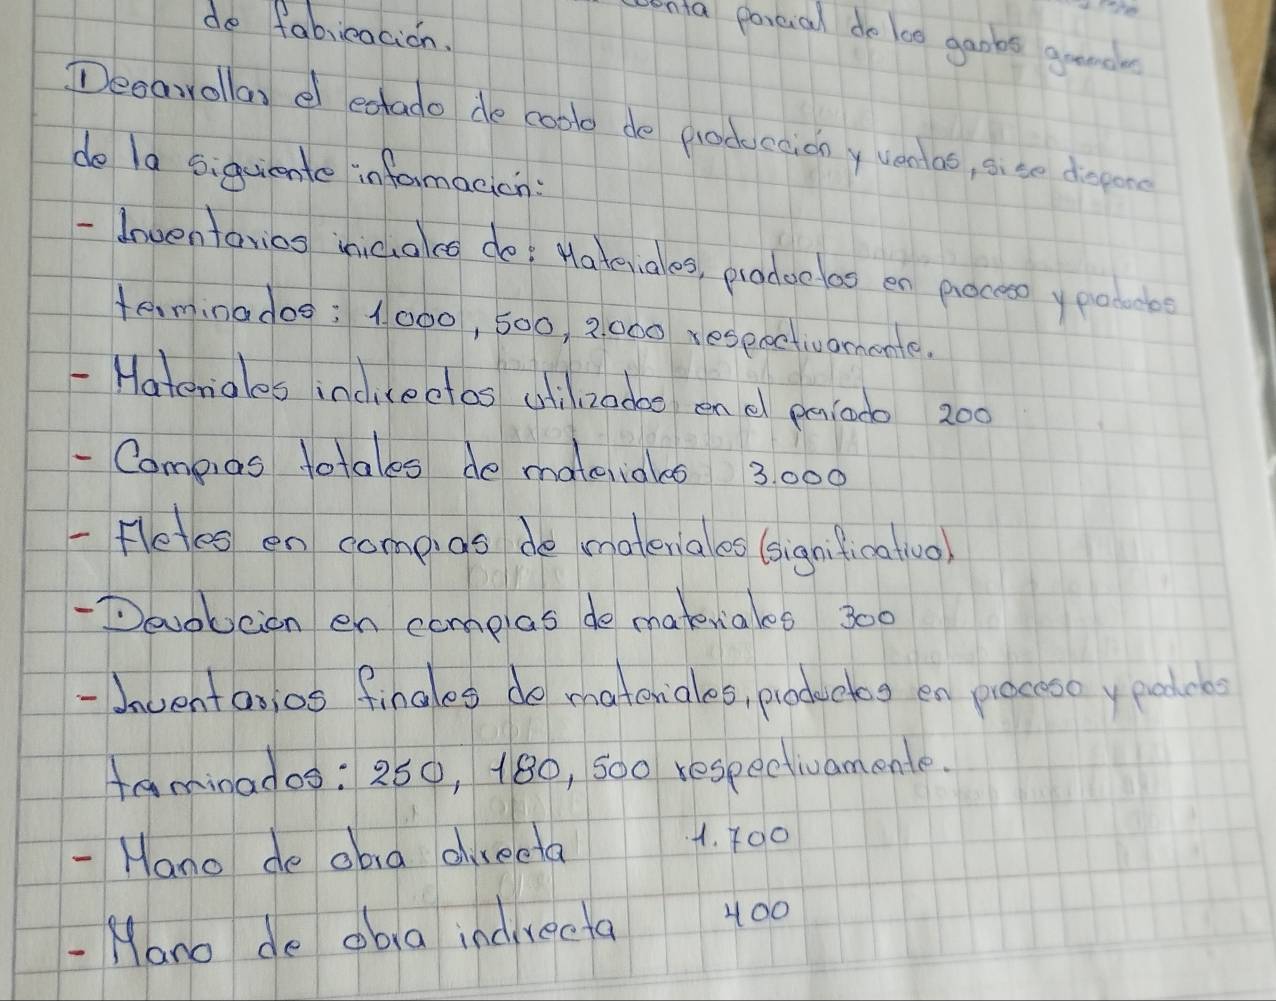 de fabricación.
parcial de los gastos
Desarrollar el estado de costo de producción y ventas, si se dispone
de la siguiente información:
- Inventarios iniciales de: Materiales, productos en proceso y productos
terminados: 1.000, 500, 2.000 respectivamente.
- Materiales indirectos utilizados en el periodo 200
- Compras totales de materiales 3.000
- Fletes en compras de materiales (significativo)
- Devolución en compras de materiales 300
- Inventarios finales de materiales, productos en proceso y productos
terminados: 250, 180, 500 respectivamente.
- Mano de obra directa 1.700
- Mano de obra indirecta 400